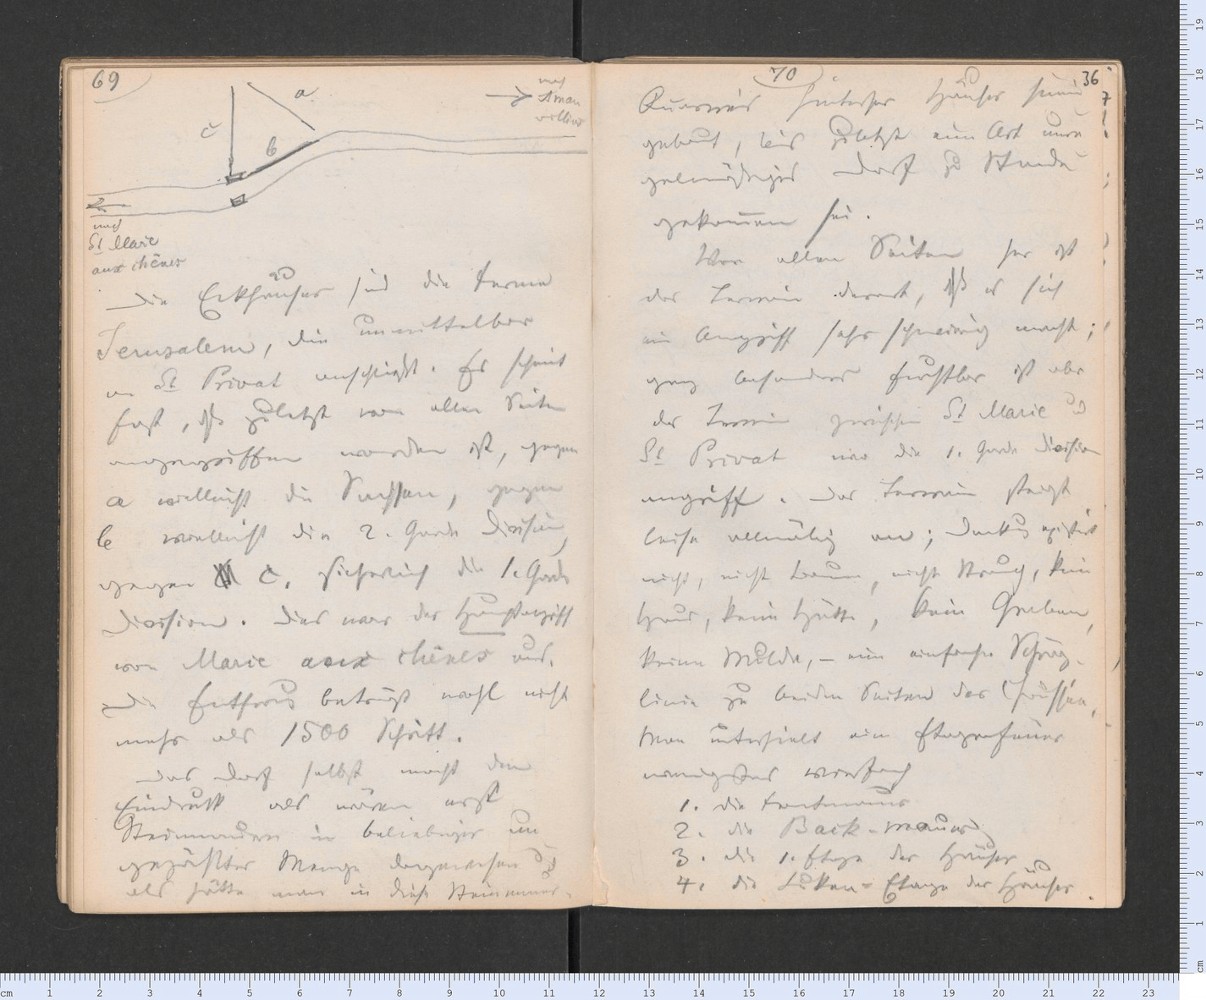 69
a
c
b
nach
Aman
villers
nach
St Marie
aux chênes
Die Eckhäuser sind die Ferme
Jerusalem, die unmittelbar
an St Privat anschließt. Es scheint
fast, daß zuletzt von allen Seiten
angegriffen worden ist, gegen
a vielleicht die Sachsen, gegen
b vielleicht die 2. Garde Division,
gegen c. sicherlich die 1. Garde
Division. Dies war der Hauptangriff
von Marie aux chênes aus.
Die Entfernung beträgt wohl nicht
mehr als 1500 Schritt.
Das Dorf selbst macht den
Eindruck als wären erst
Steinmauern in beliebiger un
gezählter Menge dagewesen und
als hätte man in diese Steinmauer-
70
36
Quarrés hinterher Häuser hinein
gebaut, bis zuletzt eine Art unre
gelmäßiges Dorf zu Stande
gekommen sei.
Von allen Seiten her ist
das Terrain derart, daß es sich
ein Angriff sehr schwierig macht;
ganz besonders furchtbar ist aber
das Terrain zwischen St Marie und
St Privat wo die 1. Garde Division
angriff. Das Terrain steigt
leise allmälig an; Deckung existirt
nicht, nicht Baum, nicht Strauch, kein
Haus, keine Hütte, kein Graben,
keine Mulde, – eine einfache Schräg-
linie zu beiden Seiten der Chaussee.
Man unterhielt ein Etagenfeuer
wenigstens vierfach
1. die Frontmauer
2. die Back-mauer
3. die 1. Etage der Häuser
4. die Luken-Etage der Häuser.